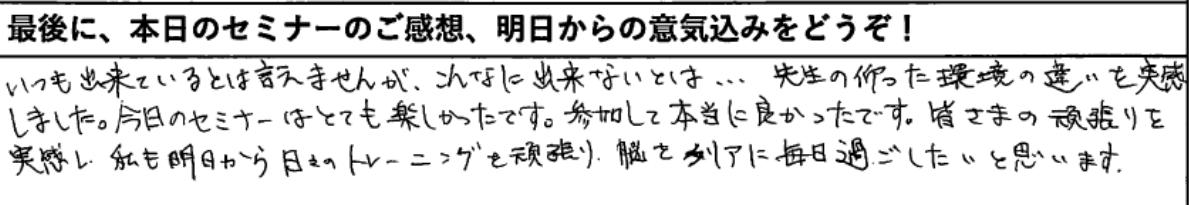 最後に、本日のセミナーのご感想、明日からの意気込みをどうぞ！
いつも出来ているとは言えませんが、こんなに出来ないとは… 先生の仰った環境の違いを実感
しました。今日のセミナーはとても楽しかったです。参加して本当に良かったです。皆さまの頑張りを
実感し、私も明日から日々のトレーニングを頑張り、脳をクリアに毎日過ごしたいと思います。